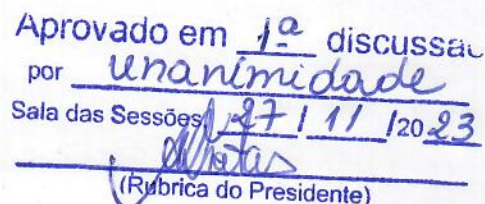 Aprovado em 1ª discussão
por unanimidade
Sala das Sessões 27 / 11 /2023
(Rubrica do Presidente)